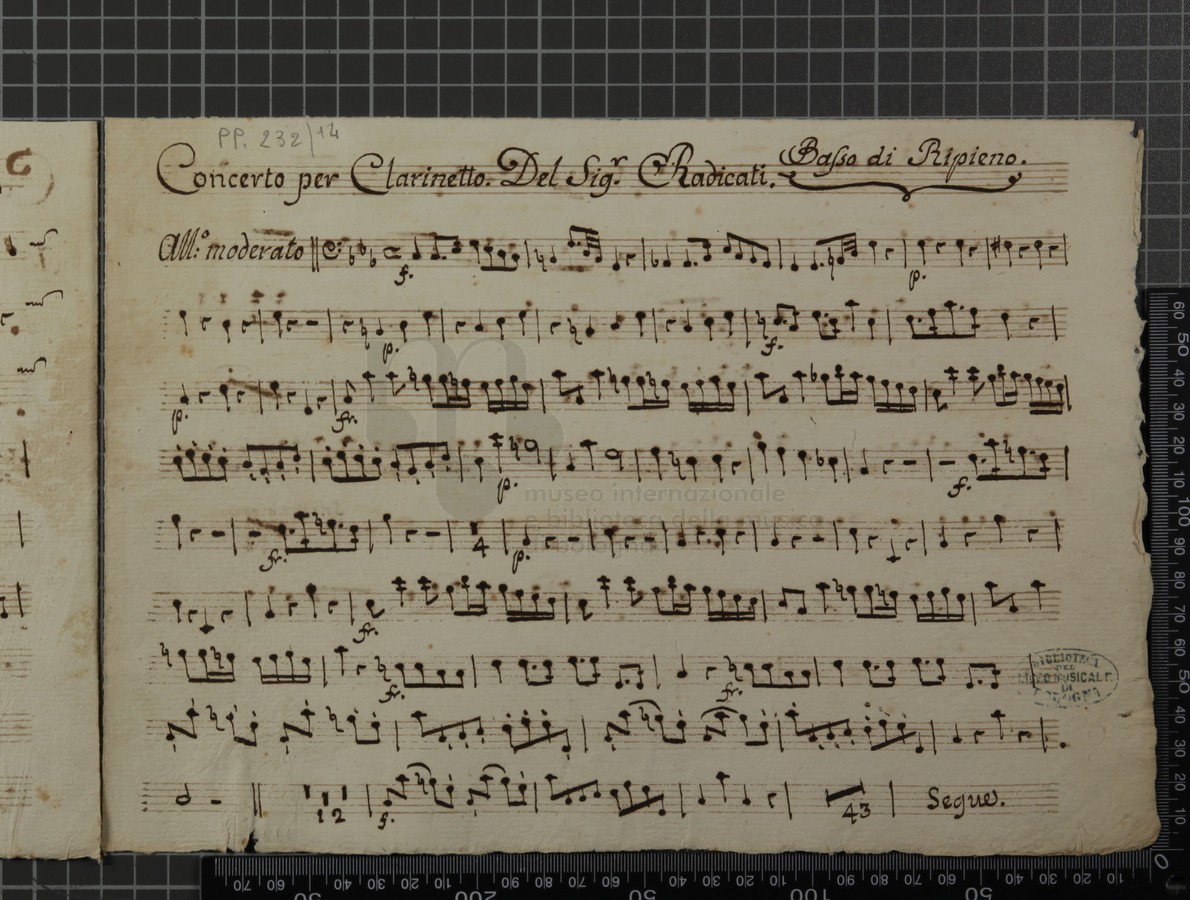 PP. 232/14
Concerto per Clarinetto. Del Sig.r Radicati. Basso di Ripieno.
All.o moderato f. p.
p. f.
p. fr.
p. f.
museo internazionale
e biblioteca della musica
fr. 4 p.
fr.
fr. fr.
BIBLIOTECA
DEL
LICEO MUSICALE
DI
BOLOGNA
12 f. 43 Segue.